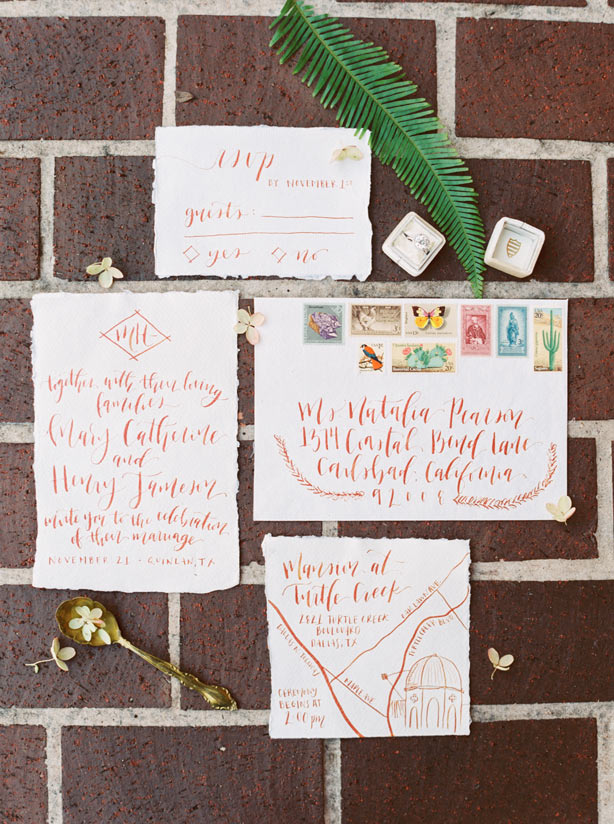 rsvp
BY NOVEMBER 1ST
guests:
yes no
MH
together with their loving
families
Mary Catherine
and
Henry Jameson
invite you to the celebration
of their marriage
NOVEMBER 21 · QUINLAN, TX
Ms. Natalia Pearson
1314 Coastal Bend Lane
Carlsbad, California
92008
Mansion at
Turtle Creek
2821 TURTLE CREEK
BOULEVARD
DALLAS, TX
TURTLE CREEK BLVD
CEREMONY
BEGINS AT
2:00 pm